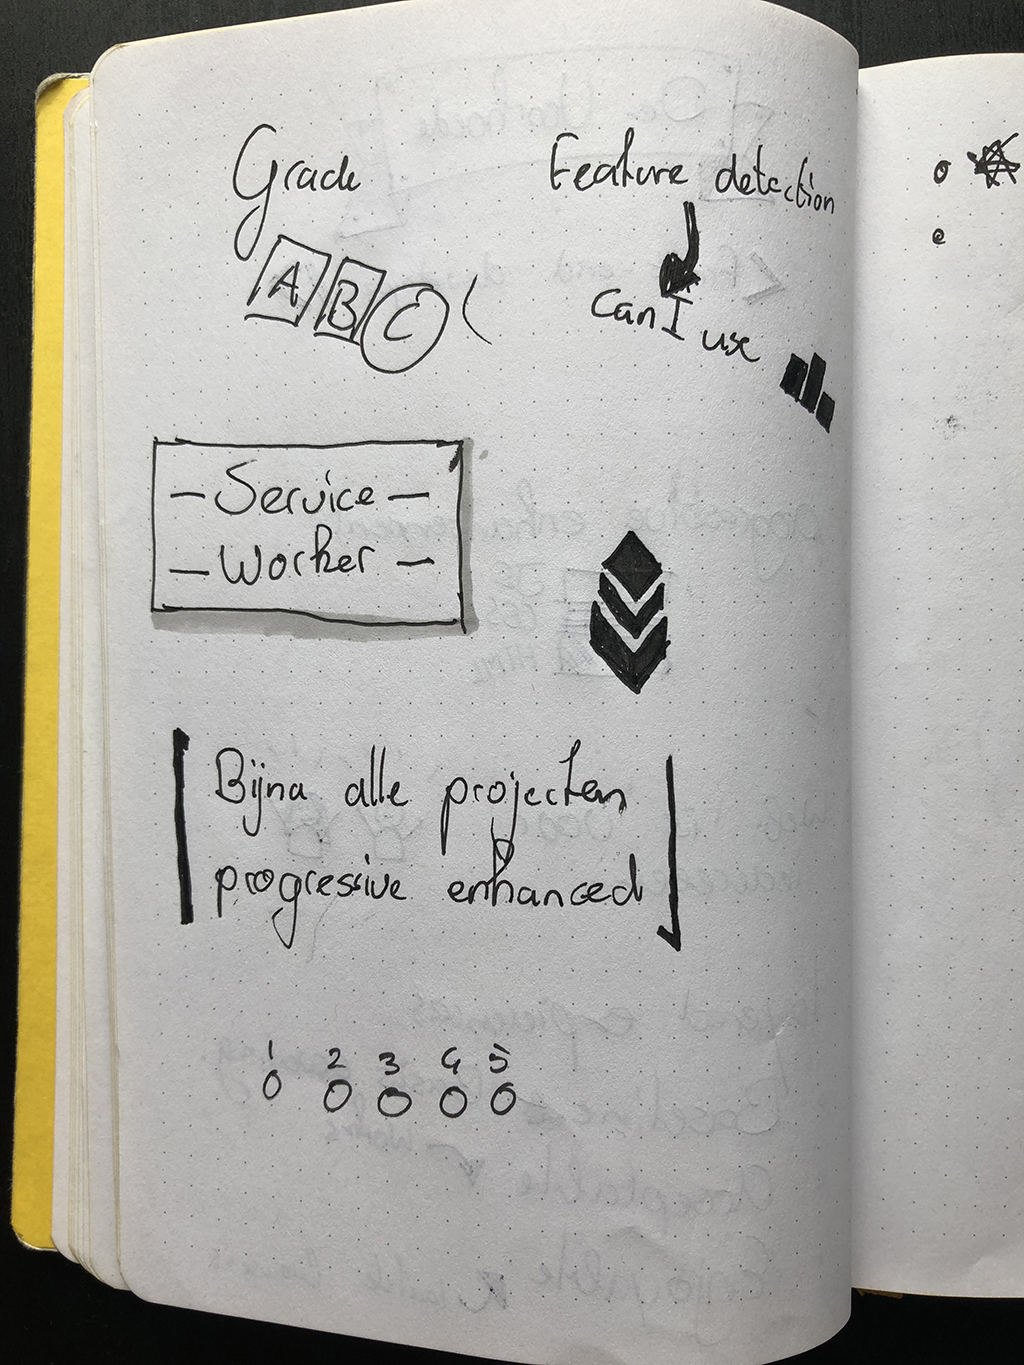 Grade
Feature detection
A B C
Can I use
- Service -
- Worker -
Bijna alle projecten
progressive enhanced
1 2 3 4 5